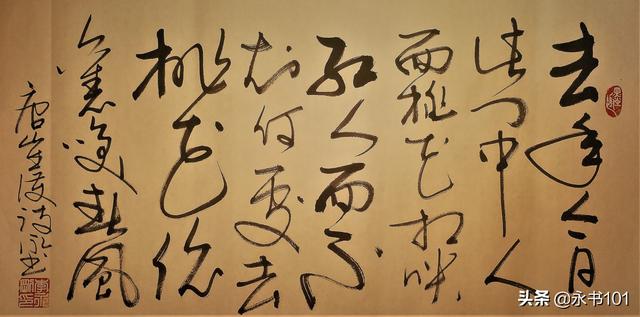 去年今日
此门中人
面桃花相映
红人面不
知何处去
桃花依
旧笑春风
唐崔护诗永书
头条 @永书101